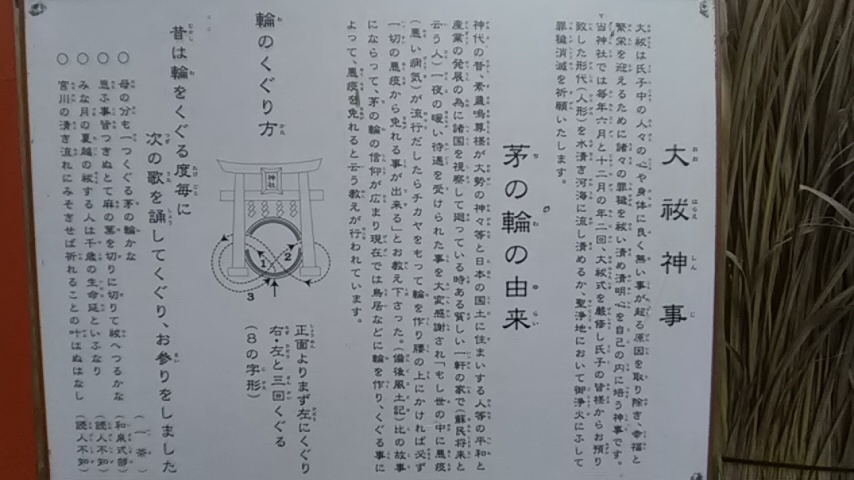 大祓神事
大祓は氏子中の人々の心や身体に良く無い事が起る原因を取り除き、幸福と
繁栄を迎えるために諸々の罪穢を祓い清め清明心を自己の内に培う神事です。
当神社では毎年六月と十二月の年二回、大祓式を厳修し氏子の皆様からお預り
致した形代(人形)を水清き河海に流し清めるか、聖浄地において御浄火にふして
罪穢消滅を祈願いたします。
茅の輪の由来
神代の昔、素盞嗚尊様が大勢の神々等と日本の国土に住まいする人等の平和と
産業の発展の為に諸国を視察して廻っている時ある貧しい一軒の家で(蘇民将来と
云う人)一夜の暖い待遇を受けられた事を大変感謝され「もし世の中に悪疫
(悪い病気)が流行だしたらチカヤをもって輪を作り腰の上にかければ必ず
一切の悪疫から免れる事が出来る」とお教え下さった。(備後風土記)比の故事
にならって、茅の輪の信仰が広まり現在では鳥居などに輪を作り、くぐる事に
よって、悪疫を免れると云う教えが行われています。
輪のくぐり方
神社
1
2
3
正面よりまず左にくぐり
右・左と三回くぐる
(8の字形)
昔は輪をくぐる度毎に
次の歌を誦してくぐり、お参りをしました
○ 母の分も一つくぐる茅の輪かな (一茶)
○ 思ふ事皆つきぬとて麻の葉を切りに切りて祓へつるかな (和泉式部)
○ みな月の夏越の祓する人は千歳の生命延といふなり (読人不知)
○ 宮川の清き流れにみそぎせば祈れることの叶はぬはなし (読人不知)